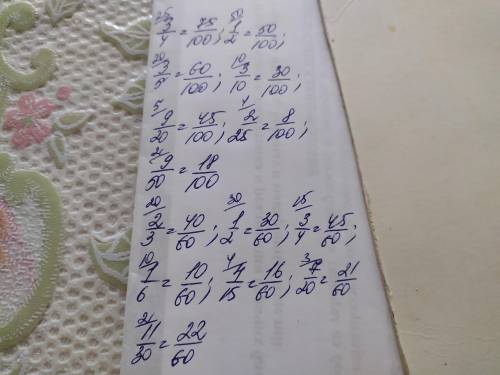 25 3/4 = 75/100; 50 1/2 = 50/100;
20 3/5 = 60/100; 10 3/10 = 30/100;
5 9/20 = 45/100; 4 2/25 = 8/100;
2 9/50 = 18/100
20 2/3 = 40/60; 30 1/2 = 30/60; 15 3/4 = 45/60;
10 1/6 = 10/60; 4 4/15 = 16/60; 3 7/20 = 21/60
2 11/30 = 22/60